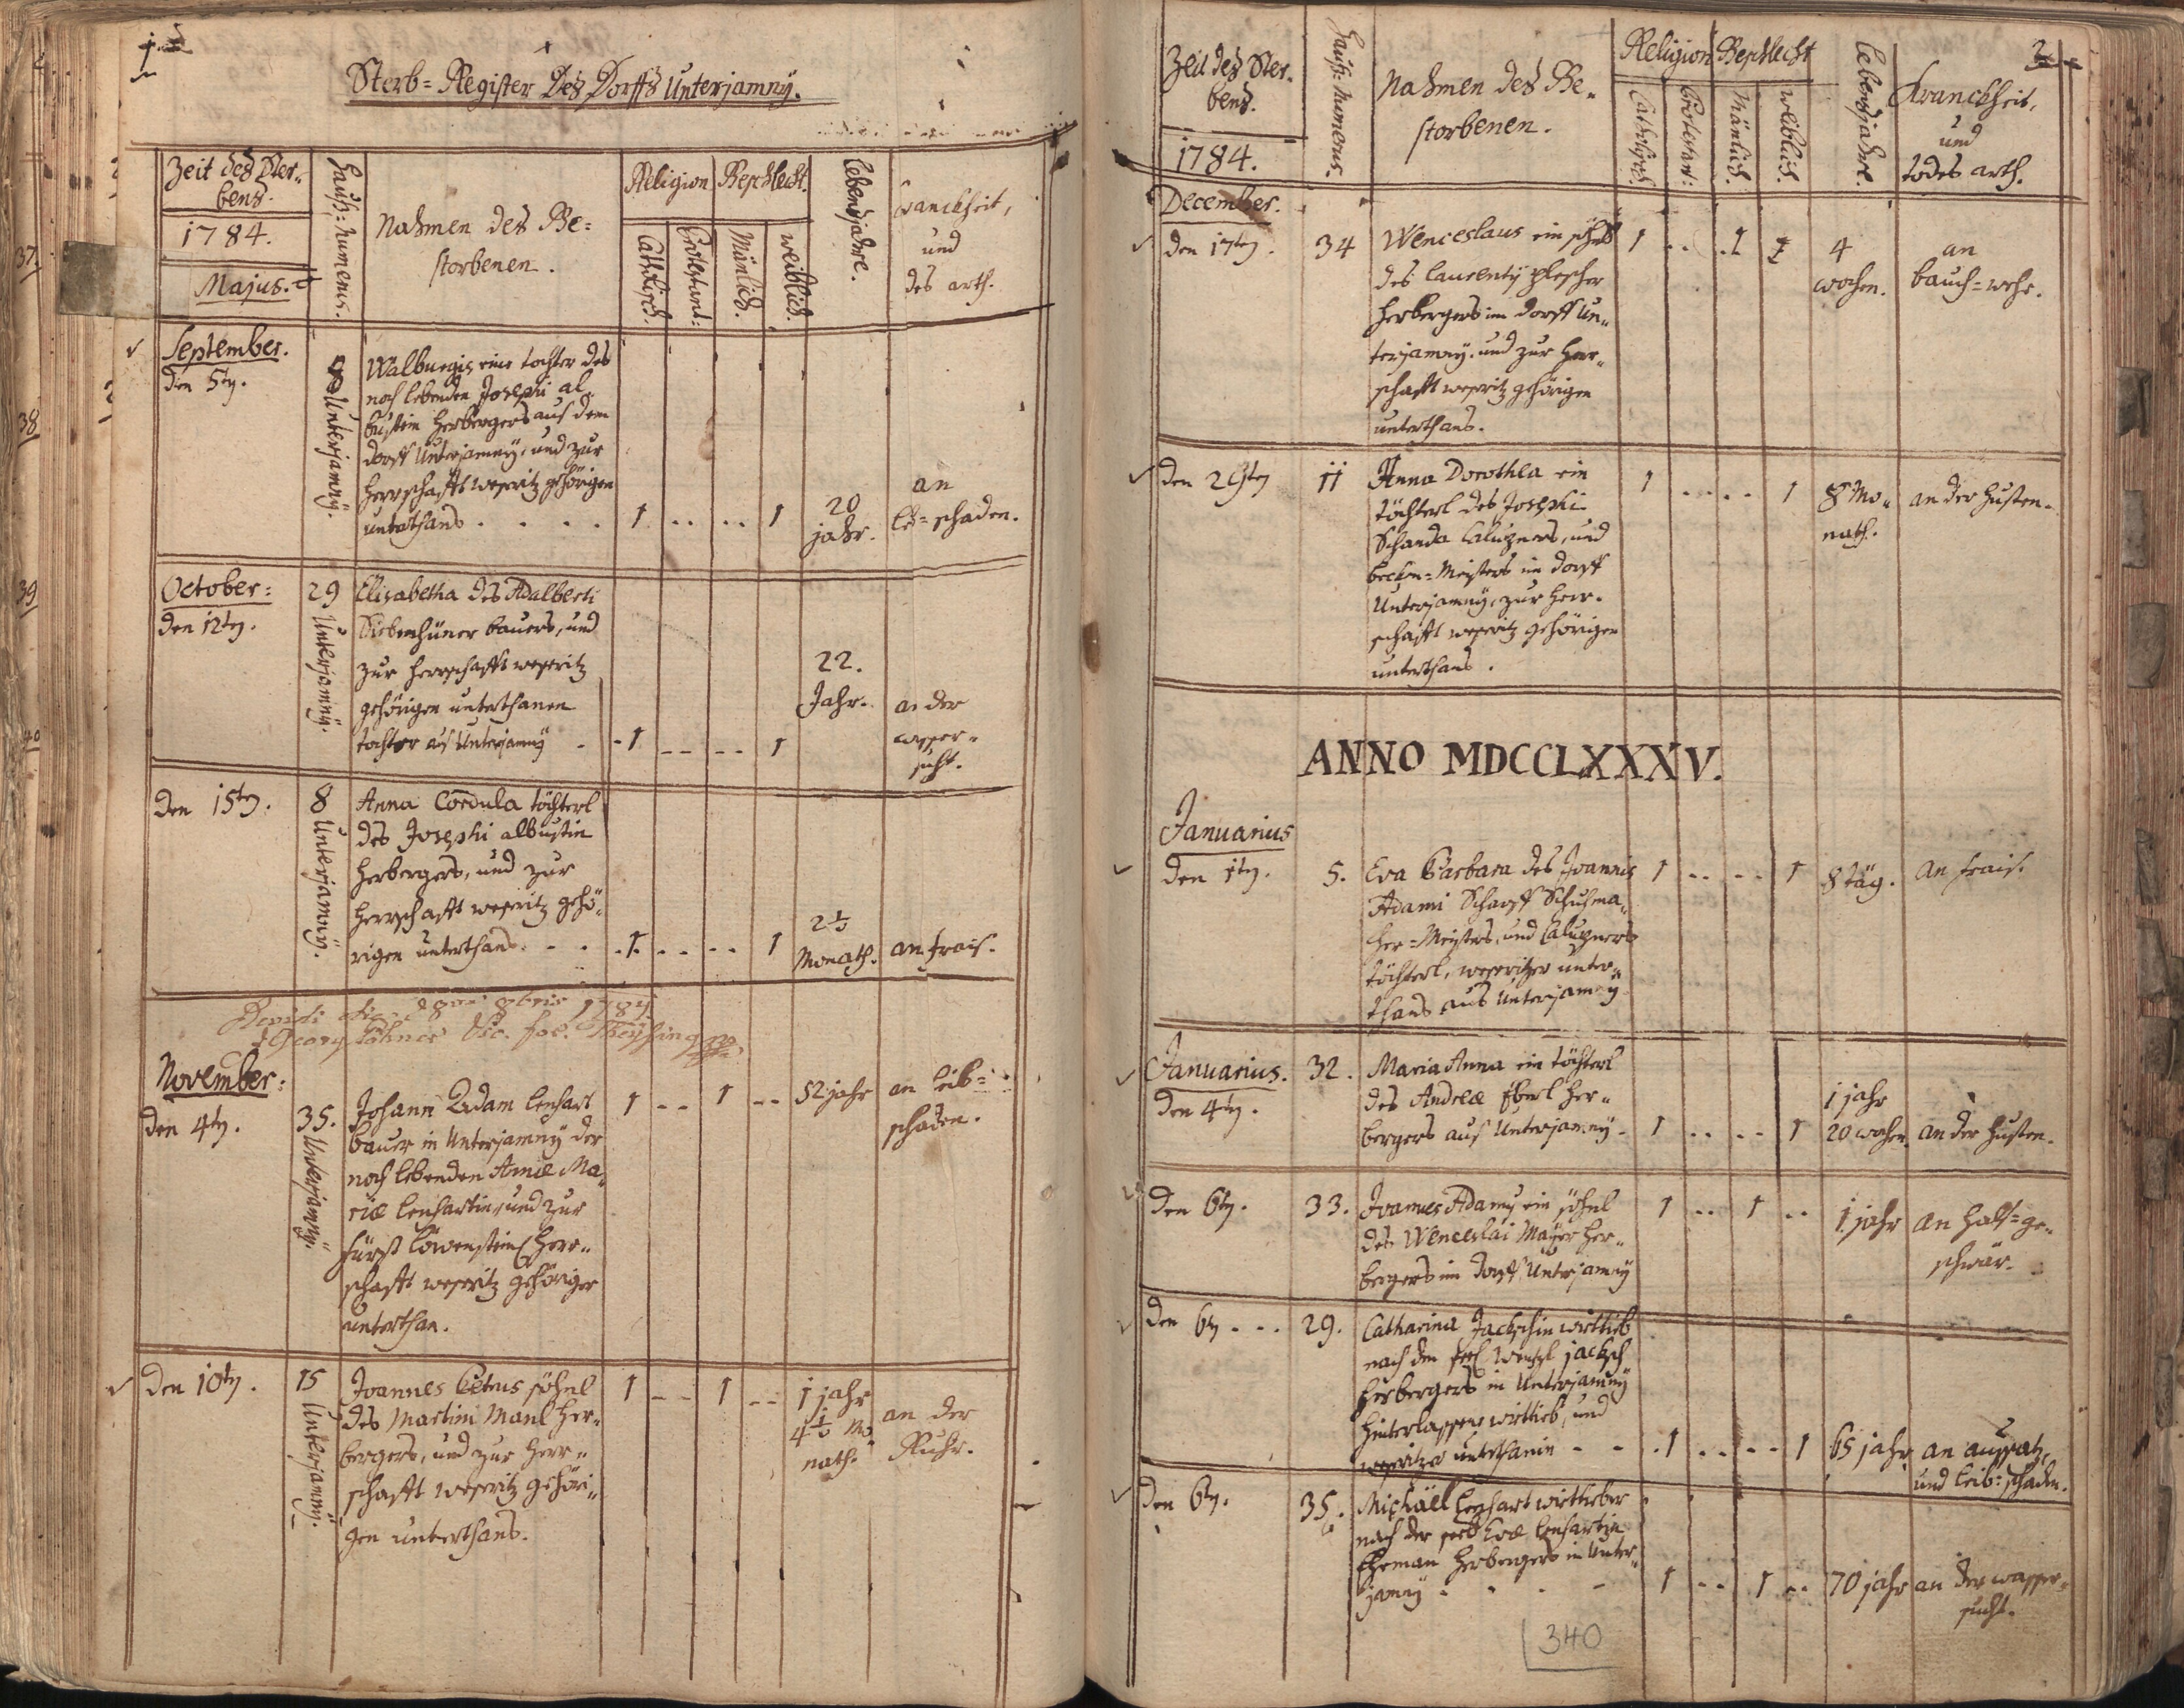 1.
Sterb=Register Des Dorffs Unterjamny.
Zeit des Ster-
bens.
1784.
Majus.
Hauß=numerus.
Nahmen des Ge=
storbenen.
Religion
Catholisch.
Protestant:
Geschlecht.
Mänlich.
weiblich.
lebensjahre.
kranckheit,
und
des arth.
September.
den 5ten.
8
Unterjamny.
Walburgis eine tochter des
noch lebenden Josephi al-
bustin Herbergers aus dem
dorff Unterjamny, und zur
Herrschafft weseritz gehörigen
unterthans . . . .
1 .. .. 1
20
jahr.
an
schaden.
October:
den 12ten.
29
Unterjamny.
Elisabetha des Adalberti
Siebenhüner bauers, und
zur Herrschafft weseritz
gehörigen unterthanen
tochter aus Unterjamny .
1 -- -- 1
22.
Jahr.
an der
wasser-
sucht.
den 15ten.
8
Unterjamny.
Anna Cordula töchterl
des Josephi albustin
Herbergers, und zur
Herrschafft weseritz gehö-
rigen unterthans. - -
1. -- -- 1
2½
Monath.
an frais.
8bris 1784.
Georg
November:
den 4ten.
35.
Unterjamny.
Johann Adam lenhart
bauer in Unterjamny der
noch lebenden Annæ Ma-
riæ lenhartin, und zur
Fürst Löwenstein Herr-
schafft weseritz gehöriger
unterthan.
1 -- 1 --
52 jahr
an leib=
schaden.
den 10ten.
15
Unterjamny.
Joannes Petrus söhnl
des Martini Manl Her-
bergers, und zur Herr-
schafft weseritz gehöri-
gen unterthans.
1 -- 1 --
1 jahr
4½ Mo-
nath.
an der
Ruhr.
2
Zeit des Ster-
bens.
1784.
Hauß=numerus.
Nahmen des Ge-
storbenen.
Religion
Catholisch.
Protestant:
Geschlecht
Mänlich.
weiblich.
lebensjahre.
Kranckheit,
und
todes arth.
December.
den 17ten.
34
Wenceslaus ein söhnl
des laurenty plescher
Herbergers im dorff Un-
terjamny. und zur Herr-
schafft weseritz gehörigen
unterthans.
1 .. 1
4
wochen.
an
bauch=wehe.
den 29ten
11
Anna Dorothea ein
töchterl des Josephi
Schanda Caluzners, und
becken=Meisters im dorff
Unterjamny, zur Herr-
schafft weseritz gehörigen
unterthans.
1 .... 1
8 Mo-
nath.
an der husten.
ANNO MDCCLXXXV.
Januarius
den 1ten.
5.
Eva Barbara des Joannis
Adami Scharff Schuhma-
cher=Meisters, und Caluzners
töchterl, weseritzer unter-
thans aus Unterjamny
1 .. -- 1
8 täg.
an frais.
Januarius.
den 4ten.
32.
Maria Anna ein töchterl
des Andreæ Eberl Her-
bergers aus Unterjamny.
1 .. .. 1
1 jahr
20 wochen
an der husten.
den 6ten.
33.
Joannes Adamus ein söhnl
des Wenceslai Mayer Her-
bergers im dorff Unterjamny
1 .. 1 ..
1 jahr
an halß=ge-
schwär.
den 6ten ...
29.
Catharina Jackschin wittib
nach den seel Wentzl jacksch
Herbergers in Unterjamny
hinterlassene wittib, und
weseritzer unterthanin - -
1 .. -- 1
65 jahr
an aussatz,
und leib=schaden.
den 6ten.
35.
Michäel lenhart wittiber
nach der seel Evæ lenhartin
Eheman Herbergers in Unter-
jamny - - - -
1 -- 1 --
70 jahr
an der wasser-
sucht.
340